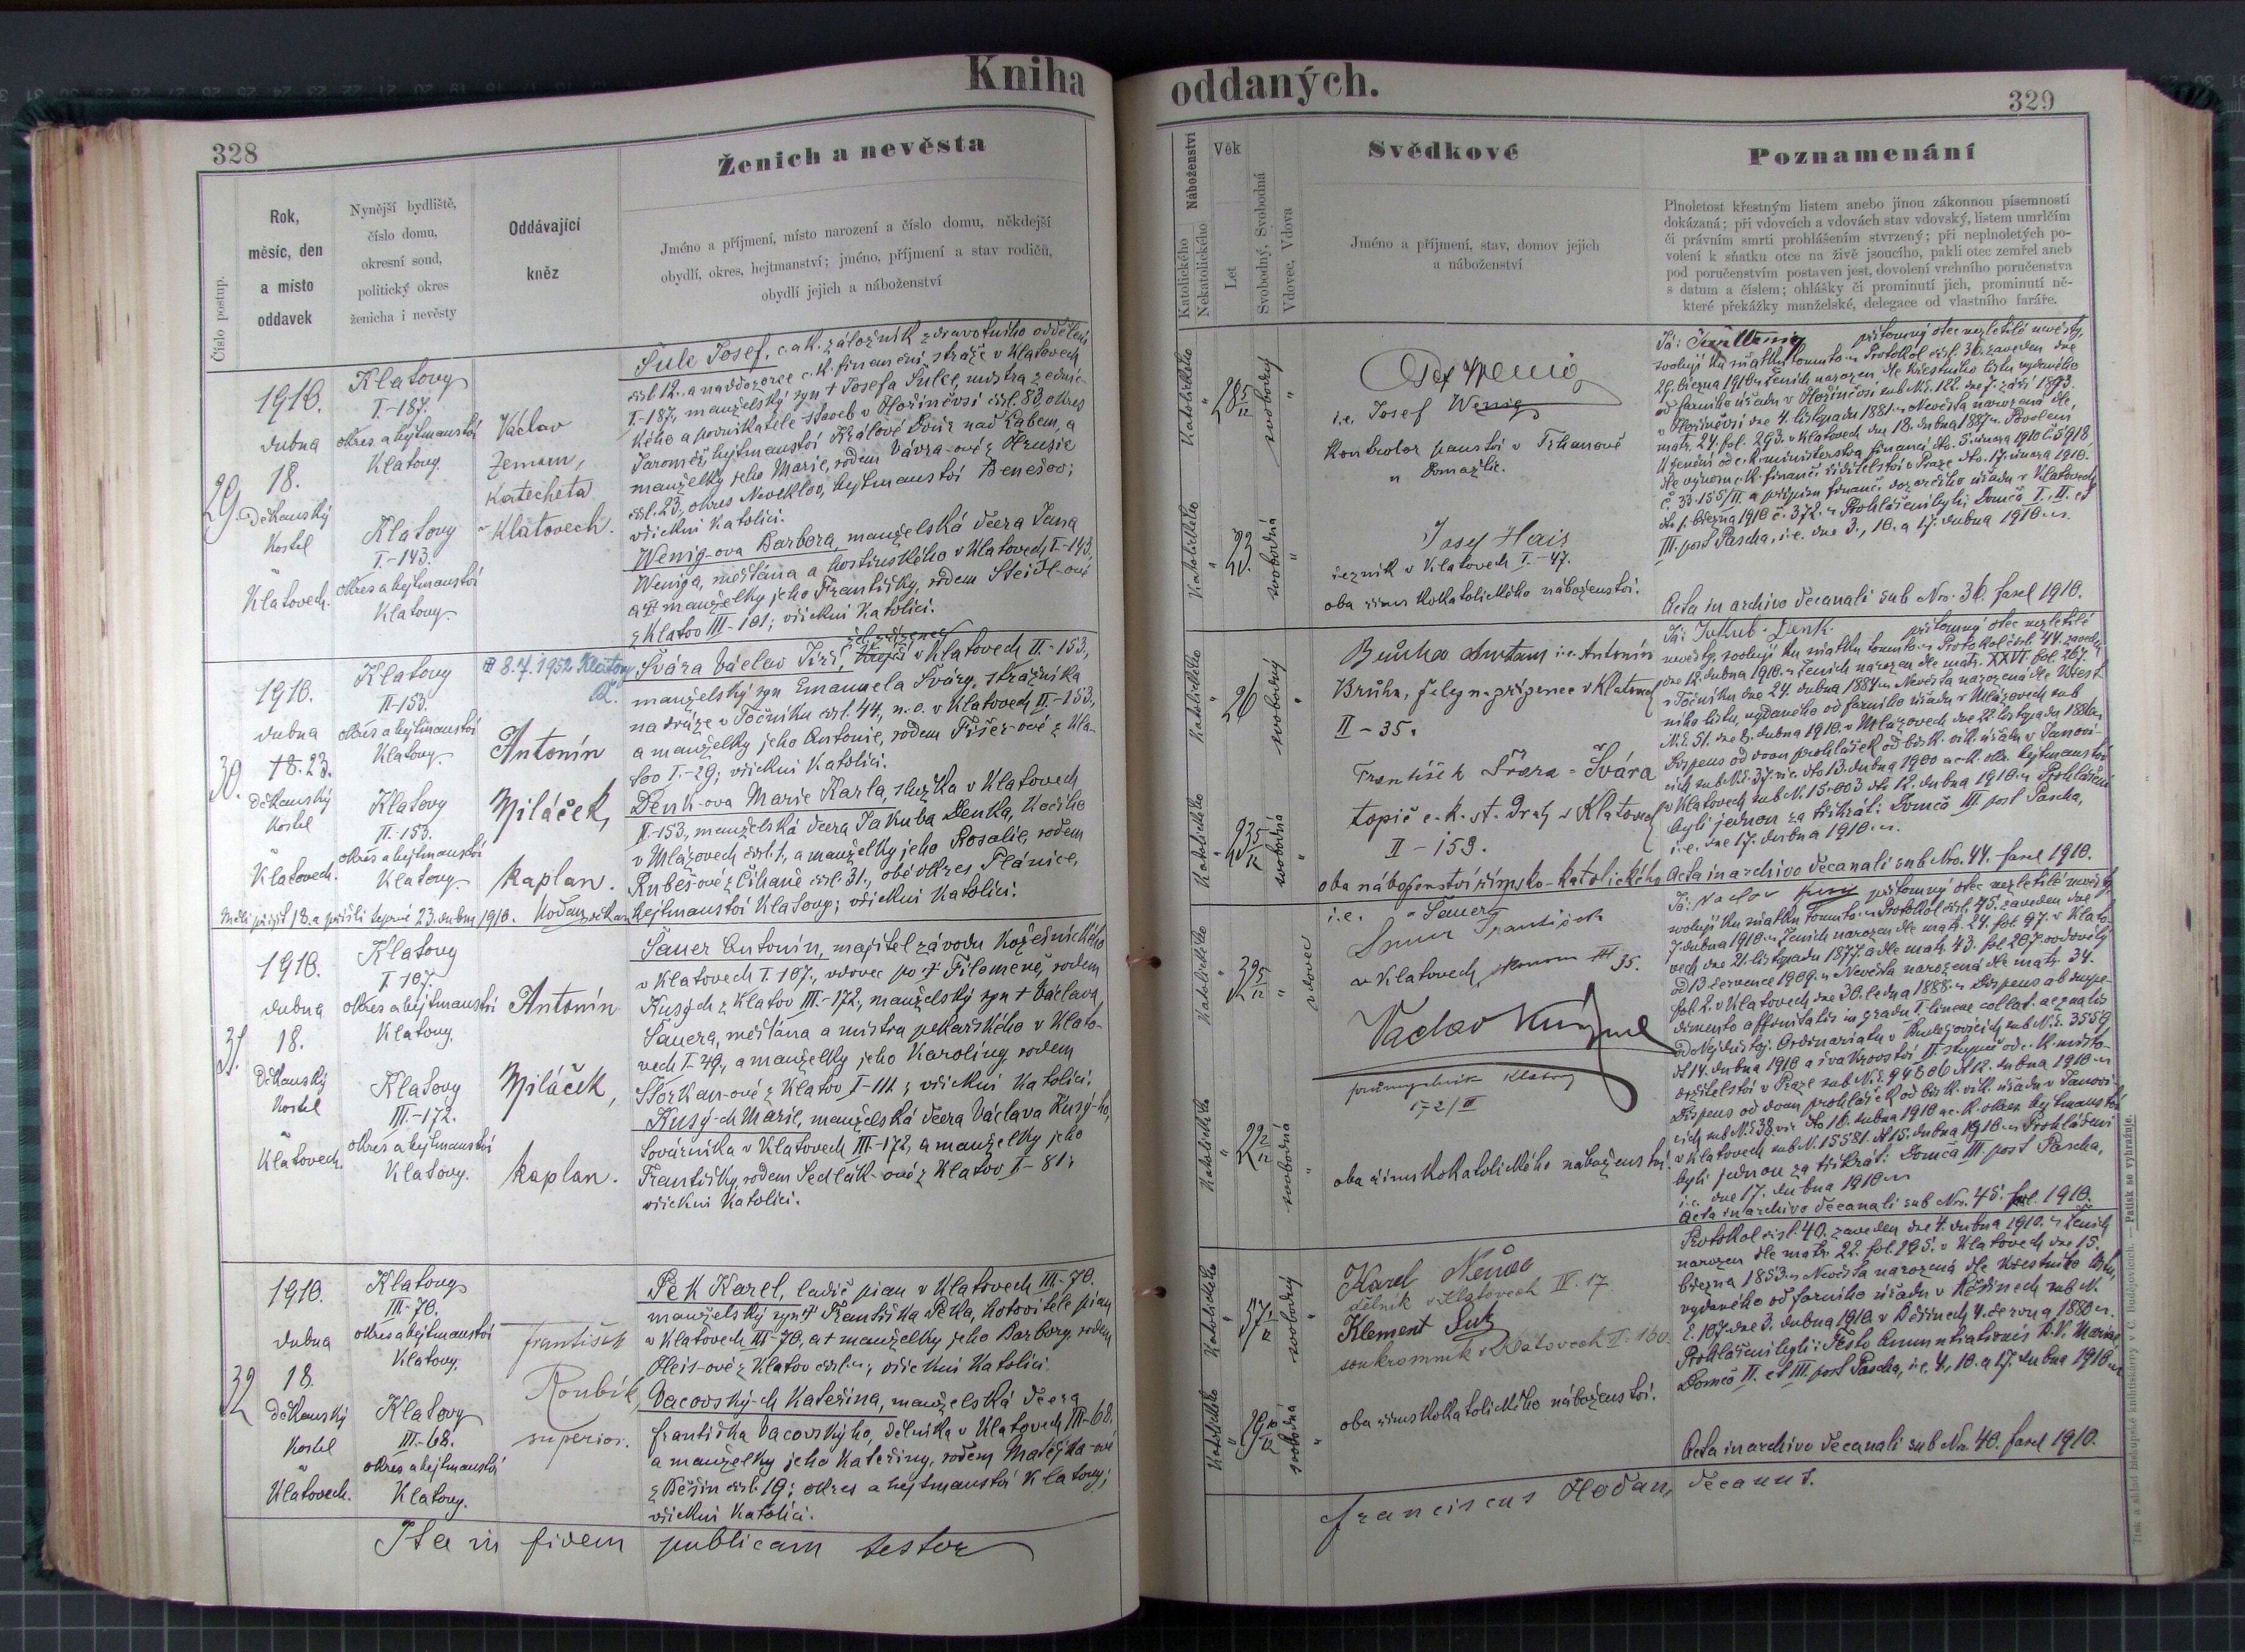 Kniha oddaných.
328
Číslo postup.
Rok,
měsíc, den
a místo
oddavek
Nynější bydliště,
číslo domu,
okresní soud,
politický okres
ženicha i nevěsty
Oddávající
kněz
Ženich a nevěsta
Jméno a příjmení, místo narození a číslo domu, někdejší
obydlí, okres, hejtmanství; jméno, příjmení a stav rodičů,
obydlí jejich a náboženství
29.
1910.
dubna
18.
Děkanský
kostel
v
Klatovech.
Klatovy
I.-187.
okres a hejtmanství
Klatovy.
Klatovy
I.-143.
okres a hejtmanství
Klatovy.
Václav
Zeman,
katecheta
v Klatovech.
Šulc Josef, c. a k. záložník zdravotního oddělení
čísl. 12. a naddozorce c. k. finanční stráže v Klatovech
I.-187, manželský syn † Josefa Šulce, mistra zednic-
kého a podnikatele staveb v Hořiněvsi čísl. 83, okres
Jaroměř, hejtmanství Králové Dvůr nad Labem, a
manželky jeho Marie, rodem Vávra-ové z
čísl. 23, okres Neveklov, hejtmanství Benešov;
všickni katolíci.
Wenig-ova Barbora, manželská dcera Jana
Weniga, měšťana a hostinského v Klatovech I-143,
a † manželky jeho Františky, rodem Steidl-ové
z Klatov III-101; všickni katolíci.
30.
1910.
dubna
18. 23.
Děkanský
kostel
v
Klatovech.
Klatovy
II-153.
okres a hejtmanství
Klatovy.
Klatovy
II.-153.
okres a hejtmanství
Klatovy.
8.7.1952 Klatovy
Antonín
Miláček,
kaplan.
Švára Václav Jiří, žel. zřízenec v Klatovech II.-153,
manželský syn Emanuela Šváry, strážníka
na dráze v Točníku čísl. 44., n. o. v Klatovech II.-153,
a manželky jeho Antonie, rodem Fišer-ové z Kla-
tov I.-29; všickni katolíci.
Denk-ova Marie Karla, služka v Klatovech
II-153, manželská dcera Jakuba Denka,
v Mlázovech čísl. 1, a manželky jeho Rosalie, rodem
Rubeš-ové z Číhaně čísl. 31., obé okres Plánice,
hejtmanství Klatovy; všickni katolíci.
Měli přijít 18. a přišli teprve 23. dubna 1910. Hodan, děkan
31.
1910.
dubna
18.
Děkanský
kostel
v
Klatovech.
Klatovy
I. 107.
okres a hejtmanství
Klatovy.
Klatovy
III.-172.
okres a hejtmanství
Klatovy.
Antonín
Miláček,
kaplan.
Šauer Antonín, majitel závodu kožešnického
v Klatovech I. 107., vdovec po † Filomeně, rodem
Kusých z Klatov III.-172., manželský syn † Václava
Šauera, měšťana a mistra pekařského v Klato-
vech I-49., a manželky jeho Karoliny, rodem
Storkan-ové z Klatov I-111; všickni katolíci.
Kusý-ch Marie, manželská dcera Václava Kusý-ho,
továrníka v Klatovech III-172, a manželky jeho
Františky, rodem Sedlák-ové z Klatov I-81;
všickni katolíci.
32
1910.
dubna
18.
Děkanský
kostel
v
Klatovech.
Klatovy
III-70.
okres a hejtmanství
Klatovy.
Klatovy
III-68.
okres a hejtmanství
Klatovy.
František
Roubík,
superior.
Pek Karel, ladič pian v Klatovech III-70.
manželský syn † Františka Peka, hotovitele pian
v Klatovech III-70, a † manželky jeho Barbory, rodem
z Klatov; všickni katolíci.
Vacovský-ch Kateřina, manželská dcera
Františka Vacovskýho, dělníka v Klatovech III-68.
a manželky jeho Kateřiny, rodem Matějka-ové
z Běšin čísl. 19; okres a hejtmanství Klatovy;
všickni katolíci.
Ita in fidem publicam testor
329
Náboženství
Katolického
Nekatolického
Věk
Let
Svobodný, Svobodná
Vdovec, Vdova
Svědkové
Jméno a příjmení, stav, domov jejich
a náboženství
Poznamenání
Plnoletost křestným listem anebo jinou zákonnou písemností
dokázaná; při vdovcích a vdovách stav vdovský, listem umrlčím
či právním smrti prohlášením stvrzený; při neplnoletých po-
volení k sňatku otce na živě jsoucího, pakli otec zemřel aneb
pod poručenstvím postaven jest, dovolení vrchního poručenstva
s datum a číslem; ohlášky či prominutí jich, prominutí ně-
které překážky manželské, delegace od vlastního faráře.
Katolického
28 5/12
svobodný
Katolického
23.
svobodná
Josef Wenig
i.e. Josef Wenig
kontrolor panství v Trhanově
u Domažlic.
Josef Hais
řezník v Klatovech I.-47.
oba římskokatolického náboženství.
Já: Jan Wenig přítomný otec nezletilé nevěsty,
svoluji ku sňatku tomuto. Protokol čísl. 36. zaveden dne
29. března 1910. Ženich narozen dle křestního listu vydaného
od farního úřadu v Hořiněvsi sub N.E. 122. dne 7. září 1893.
v Hořiněvsi dne 4. listopadu 1881. Nevěsta narozena dle
matr. 24. fol. 293. v Klatovech dne 18. dubna 1887. Povolení
k ženění od c. k. ministerstva financí dto. 5. února 1910 č. 5918,
dle výnosu c. k. finanč. ředitelství v Praze dto. 17. února 1910.
č. 33.155/II. a přípisu finanč. dozorčího úřadu v Klatovech
dto 1. března 1910 č. 372. Prohlášeni byli: Domca I., II. et
III. post Pascha, i.e. dne 3., 10. a 17. dubna 1910.
Acta in archivo decanali sub Nro. 36. fasc 1910.
Katolického
26
svobodný
Katolického
23 5/12
svobodná
i.e. Antonín
Brůha, železn. zřízenec v Klatovech
II-35.
František Švára = Švára
topič c. k. st. dráhy v Klatovech
II-159.
oba náboženství římsko-katolického
Já: Jakub Denk přítomný otec nezletilé
nevěsty, svoluji ku sňatku tomuto. Protokol čísl. 44. zaveden
dne 12. dubna 1910. Ženich narozen dle matr. XXVI. fol. 267.
v Točníku dne 24. dubna 1884. Nevěsta narozená dle křest-
ního listu, vydaného od farního úřadu v Mlázovech sub
N.E. 51. dne 8. dubna 1910. v Mlázovech dne 22. listopadu 1886.
Dispens od dvou prohlášek od bisk. vik. úřadu v Janovi-
cích sub N.E. 37. vic. dto 13. dubna 1910 a c. k. okr. hejtmanství
v Klatovech sub N. 15.003 dto 12. dubna 1910. Prohlášeni
byli jednou za třikrát: Domca III. post Pascha,
i.e. dne 17. dubna 1910.
Acta in archivo decanali sub Nro. 44. fasc 1910.
Katolického
32 5/12
vdovec
Katolického
22 2/12
svobodná
i.e. Šauer
František
v Klatovech III 35.
Václav
průmyslník Klatovy
172/III
oba římskokatolického náboženství.
Já: Václav Kusý přítomný otec nezletilé nevěsty
svoluji ku sňatku tomuto. Protokol čísl. 45. zaveden dne
7. dubna 1910. Ženich narozen dle matr. 24. fol. 97. v Klato-
vech dne 21. listopadu 1877. a dle matr. 43. fol. 207. ovdovělý
od 13 července 1909. Nevěsta narozená dle matr. 34.
fol. 2. v Klatovech dne 30. ledna 1888. Dispens ab impe-
dimento affinitatis in gradu I. lineae collat. aequalis
od Nejdůstoj. Ordinariatu v Budějovicích sub N.E. 3559
dt 14. dubna 1910 a švakrovství II. stupně od c. k. místo-
držitelství v Praze sub N.E. 94606 dt 12. dubna 1910.
Dispens od dvou prohlášek od bisk. vik. úřadu v Janovi-
cích sub N.E. 38. vic dto 16. dubna 1910 a c. k. okres. hejtmanství
v Klatovech sub N. 15581. dt 15. dubna 1910. Prohlášeni
byli jednou za třikrát: Domca III. post Pascha,
i.e. dne 17. dubna 1910
Acta in archivo decanali sub Nro. 45. fasc. 1910.
Katolického
57 1/12
svobodný
Katolického
29 10/12
svobodná
Karel Němec
dělník v Klatovech IV. 17
Klement
soukromník v Klatovech II. 160.
oba římskokatolického náboženství.
Protokol čísl. 40. zaveden dne 4. dubna 1910. Ženich
narozen dle matr. 22. fol. 195. v Klatovech dne 15.
března 1853. Nevěsta narozená dle křestního listu,
vydaného od farního úřadu v Běšinech sub N.
E. 107. dne 3. dubna 1910. v Běšinech 4. června 1880.
Prohlášeni byli: Festo Annuntiationis B. V. Mariae,
Domca II. et III. post Pascha, i.e. 4., 10. a 17. dubna 1910.
Acta in archivo decanali sub Nro. 40. fasc 1910.
Franciscus Hodan, decanus.
Tisk a sklad biskupské knihtiskárny v Č. Budějovicích. — Patisk se vyhražuje.